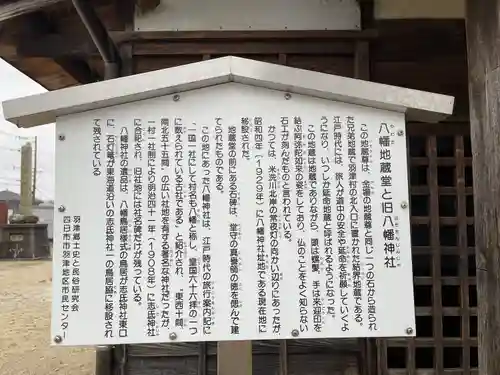 八幡地蔵堂と旧八幡神社
この地蔵尊は、金場の地蔵尊と同じ一つの石から造られ
た兄弟地蔵で羽津村の北入口に置かれた結界地蔵である。
江戸時代には、旅人が道中の安全や延命を祈願していくよ
うになり、いつしか延命地蔵と呼ばれるようになった。
この地蔵は地蔵でありながら、頭は螺髪、手は来迎印を
結ぶ阿弥陀如来の姿をしており、仏のことをよく知らない
石工が刻んだものと言われている。
かつては、米洗川北岸の常夜燈の向かい辺りにあったが
昭和四年(1929年)に八幡神社址地である現在地に
移設された。
地蔵堂の前にある石碑は、堂守の真譽頓の徳を偲んで建
てられたものである。
この地にあった八幡神社は、江戸時代の旅行案内記に
「一国一社にして村名も八幡と称し、皇国六十六社の一つ
に数えられている古社である」と紹介され、“東西十間、
南北五十五間”の広い社地を有する著名な神社だったが
一村一社制により明治四十一年(1908年)に志氐神社
に合祀され、旧社地には社名碑だけが残っている。
八幡神社の遺物は、八幡鳥居様式の鳥居が志氐神社東口
に、石灯籠が東海道沿いの志氐神社一の鳥居脇に移設され
て残されている。
羽津郷土史と民俗研究会
四日市市羽津地区市民センター